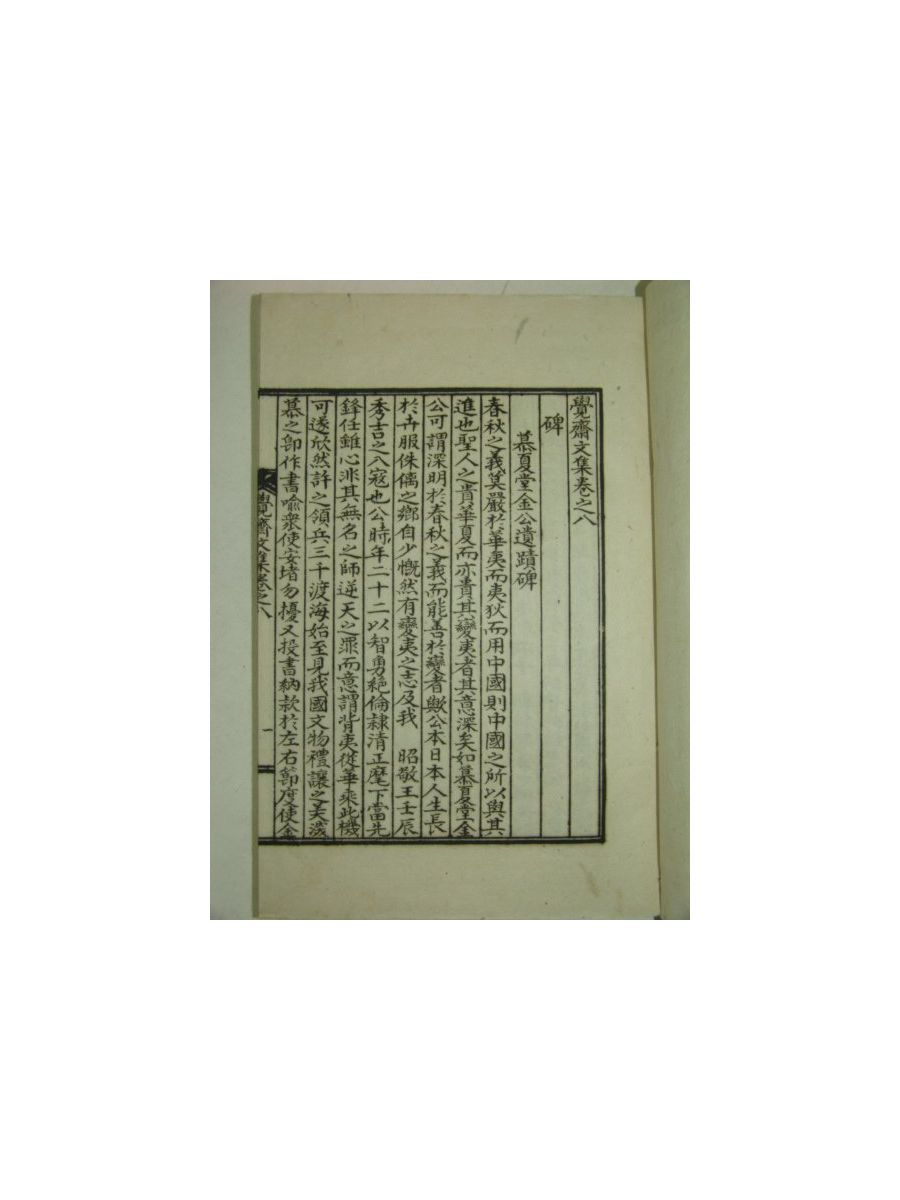 覺齋文集卷之八
碑
慕夏堂金公遺蹟碑
春秋之義莫嚴於華夷而夷狄而用中國則中國之所以與其
進也聖人之貴華夏而亦貴其變夷者其意深矣如慕夏堂金
公可謂深明於春秋之義而能善於變者歟公本日本人生長
於卉服侏㒧之鄕自少慨然有變夷之志及我 昭敬王壬辰
秀吉之入寇也公時年二十二以智勇絶倫隷清正麾下當先
鋒任雖心非其無名之師逆天之罪而意謂背夷從華乘此機
可遂欣然許之領兵三千渡海始至見我國文物禮讓之美深
慕之卽作書喩衆使安堵勿擾又投書納款於左右節度使金
覺齋文集卷之八
一